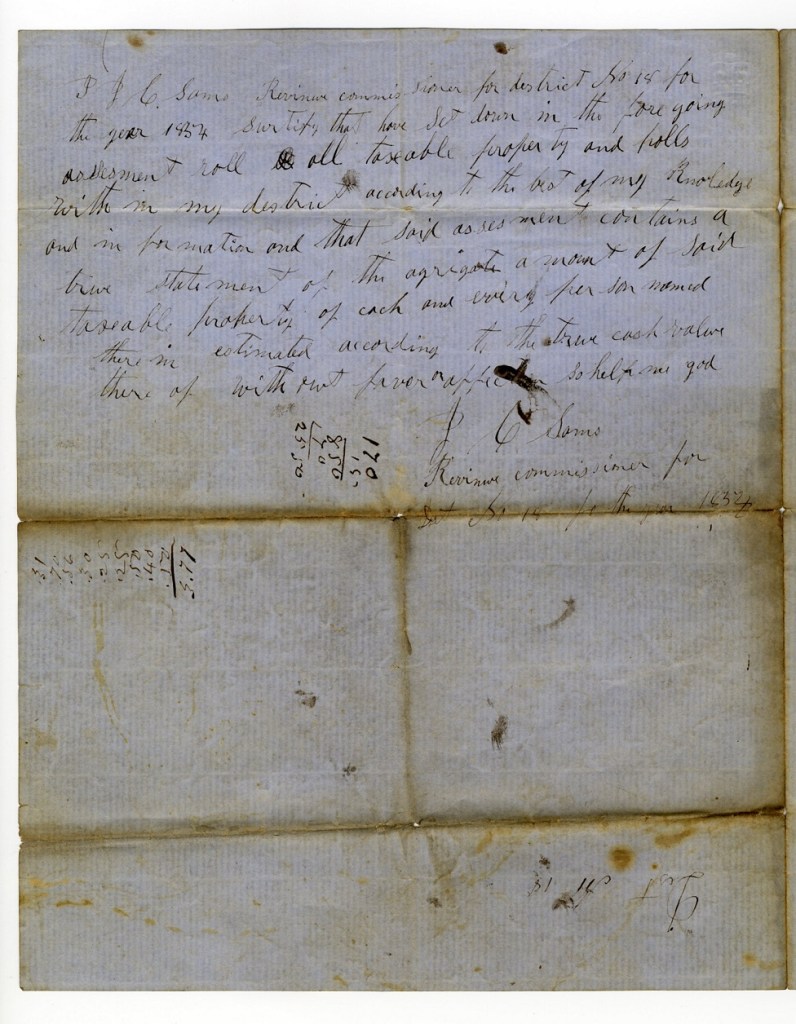 I J C. Sams Revinue commissioner for destrict No 18 for
the year 1854 surtify that have Set down in the foregoing
assessment roll all taxeable property and polls
with in my destrict according to the best of my Knoledge
and in formation and that said assesment contains a
true statement of the agrigate amount of said
taxeable property of each and every person named
there in estimated according to the true cash value
there of with out favor or affection so help me god
J C Sams
Revinue commissioner for
No 18 for the year 1854
170
15
850
2550
3.77
Dist No 18